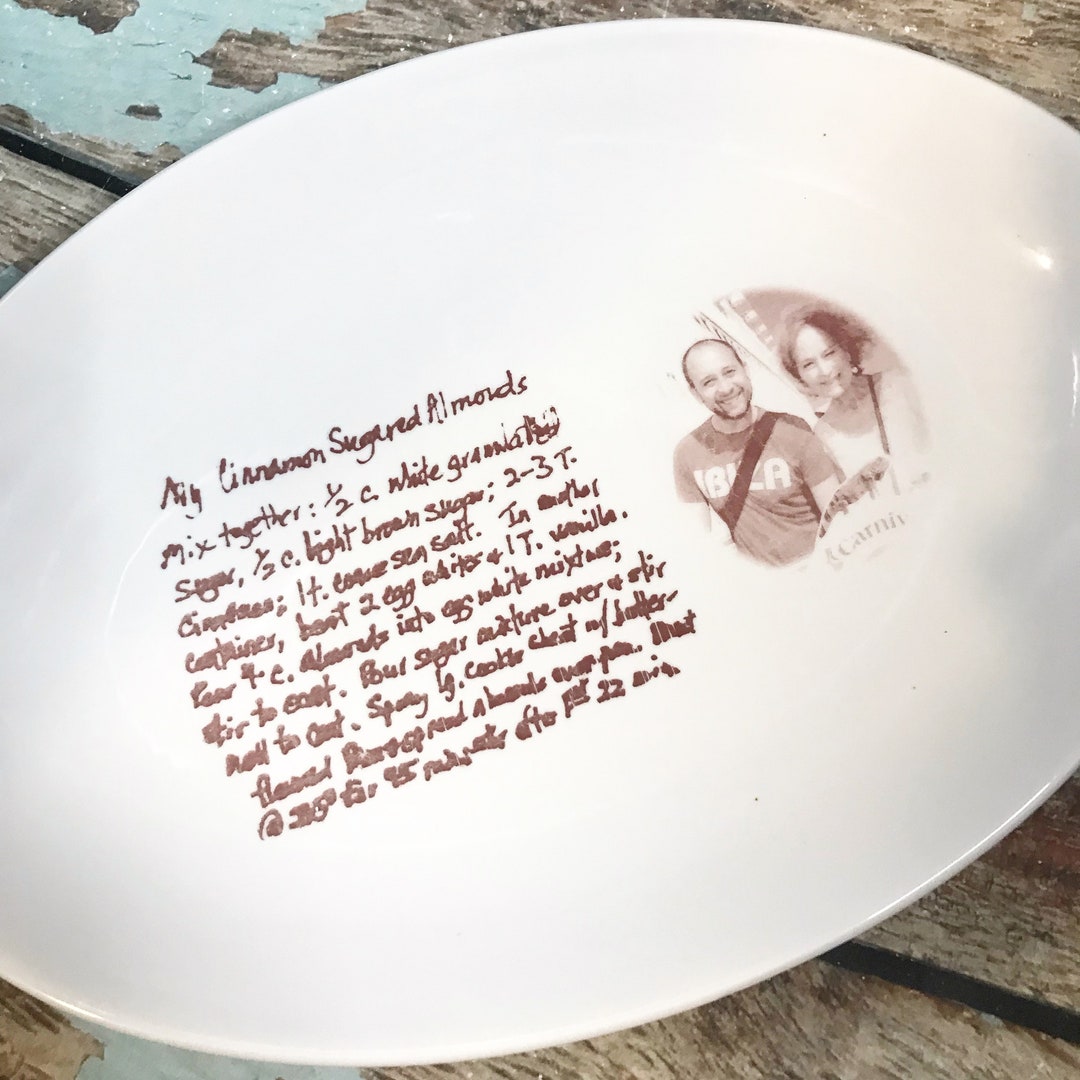 My Cinnamon Sugared Almonds
Mix together: 1/2 c. white granulated
Sugar, 1/2 c. light brown sugar; 2-3 T.
Cinnamon; 1 t. coarse sea salt. In another
container, beat 2 egg whites & 1 T. vanilla.
Pour 4 c. almonds into egg white mixture;
stir to coat. Pour sugar mixture over & stir
well to coat. Spray lg. cookie sheet w/ butter-
flavored spread almonds over pan.
@ for 45 min, after 22 min.
IBIZA
Carniv